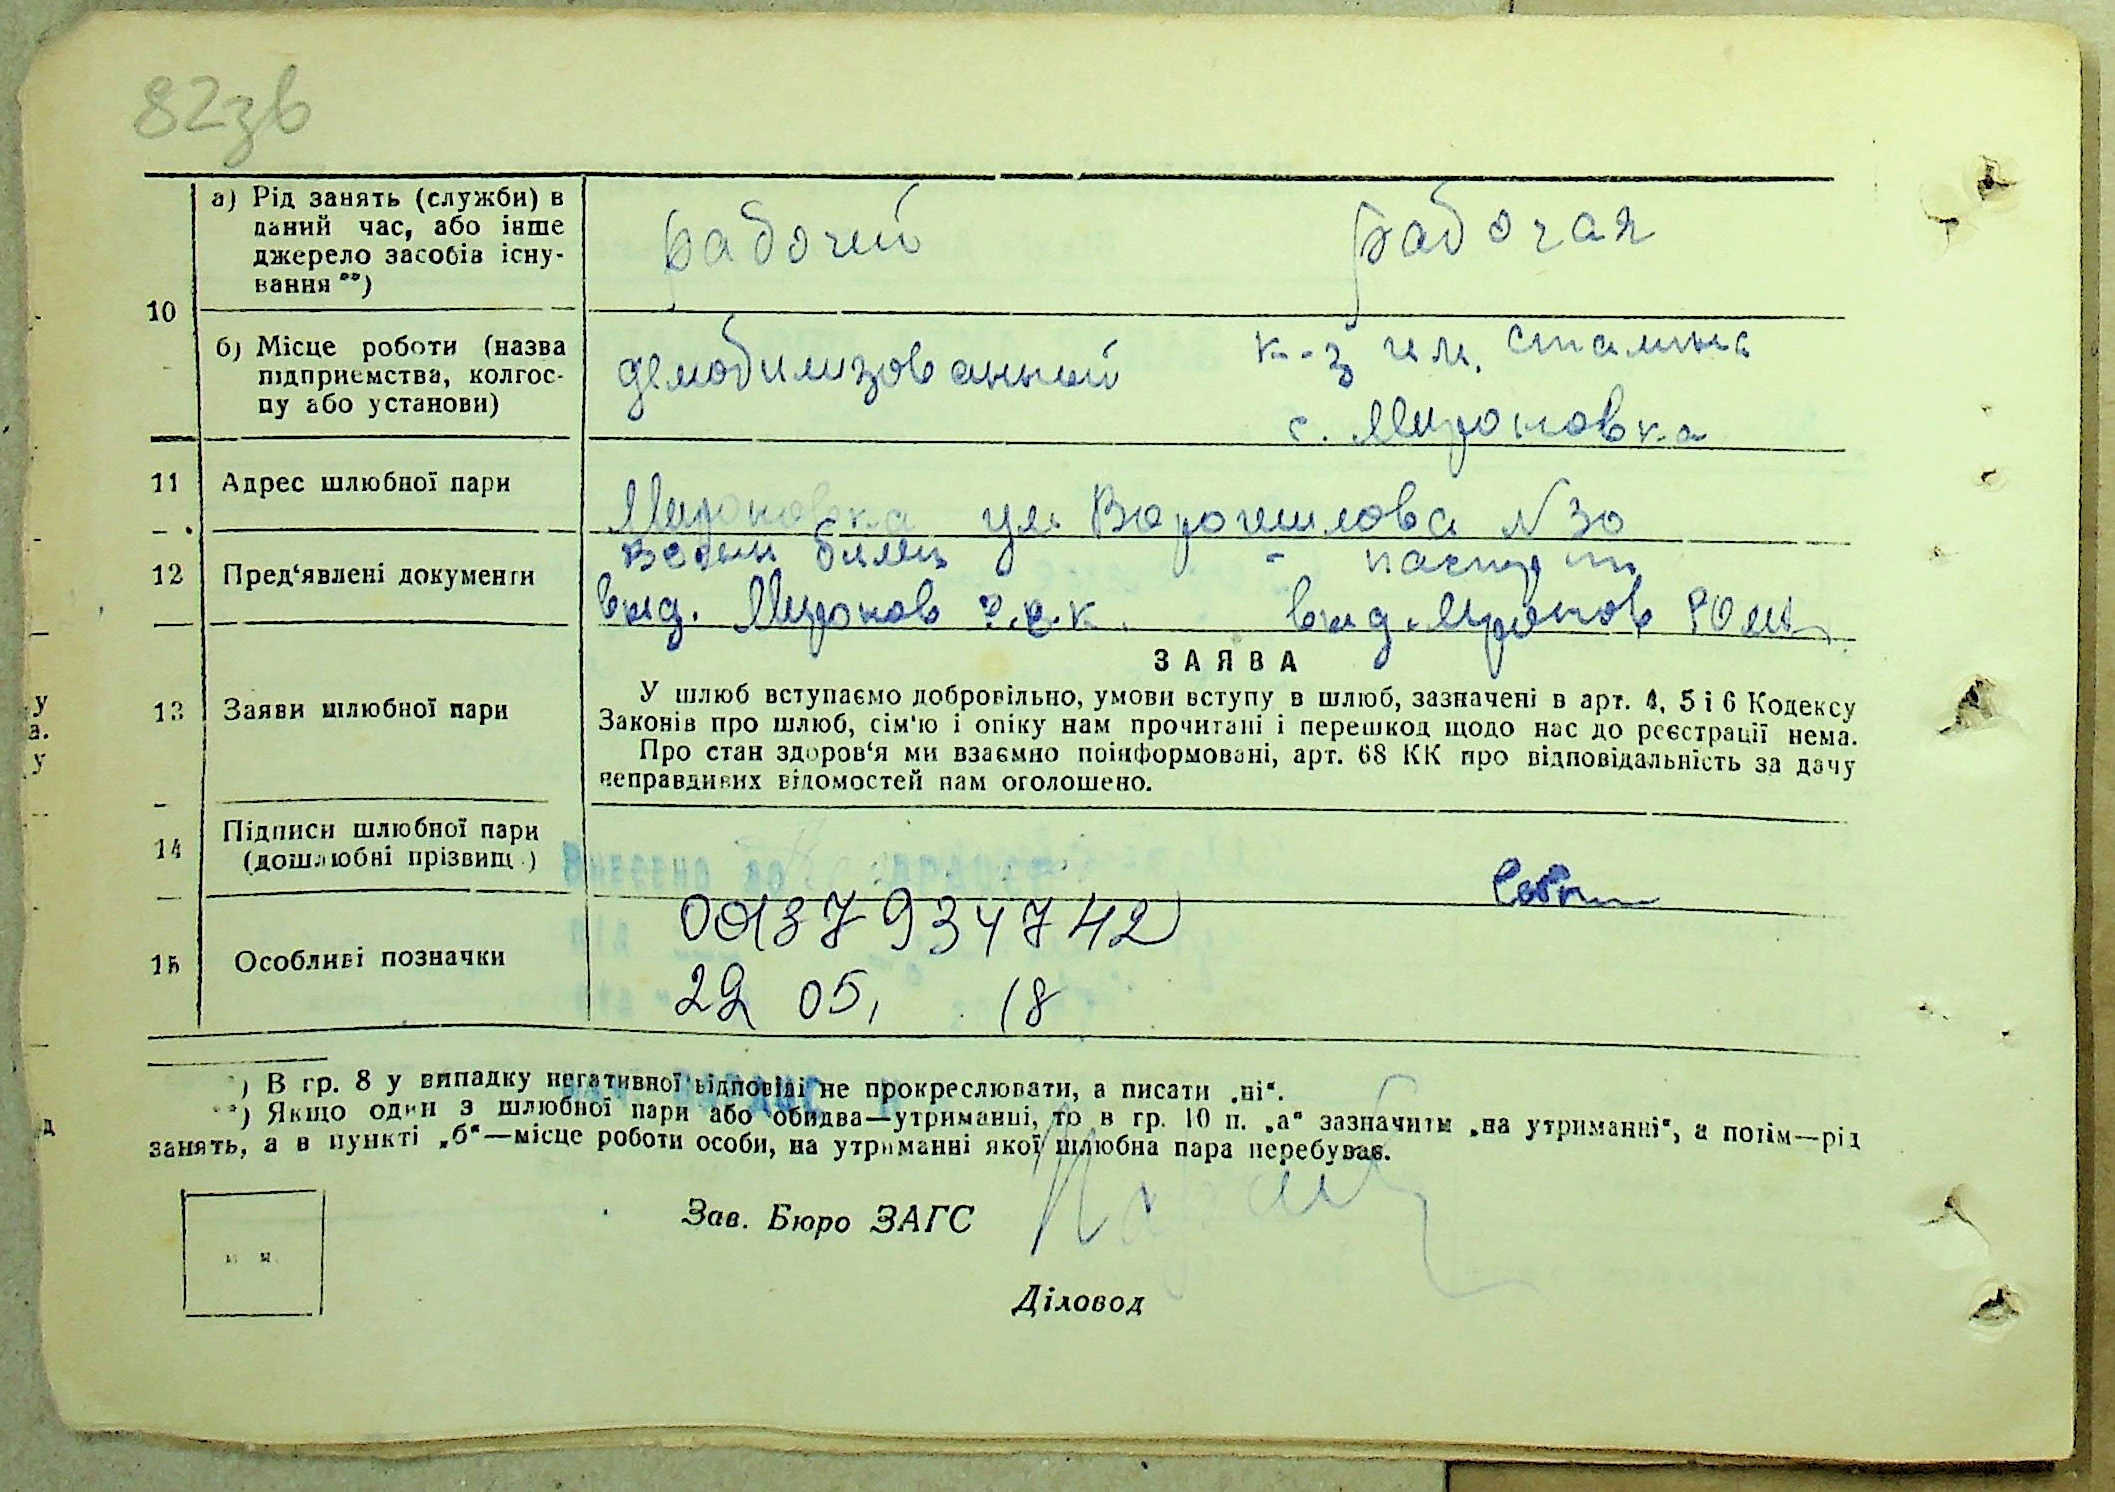 82зв
10
а) Рід занять (служби) в
даний час, або інше
джерело засобів існу-
вання **)
рабочий рабочая
б) Місце роботи (назва
підприємства, колгос-
пу або установи)
демобилизованный к-з им. Сталина
с. Мироновка
11 Адрес шлюбної пари
Мироновка ул. Ворошилова №30
12 Пред'явлені документи
Воен билет - паспорт
выд. Миронов выд. Миронов РОМ
13 Заяви шлюбної пари
ЗАЯВА
У шлюб вступаємо добровільно, умови вступу в шлюб, зазначені в арт. 4, 5 і 6 Кодексу
Законів про шлюб, сім'ю і опіку нам прочитані і перешкод щодо нас до реєстрації нема.
Про стан здоров'я ми взаємно поінформовані, арт. 68 КК про відповідальність за дачу
неправдивих відомостей нам оголошено.
14 Підписи шлюбної пари
(дошлюбні прізвищ.)
15 Особливі позначки
00137934742
29 05, 18
*) В гр. 8 у випадку негативної відповіді не прокреслювати, а писати „ні“.
**) Якщо один з шлюбної пари або обидва—утриманці, то в гр. 10 п. „а“ зазначити „на утриманні“, а потім—рід
занять, а в пункті „б“—місце роботи особи, на утриманні якої шлюбна пара перебуває.
Зав. Бюро ЗАГС
Діловод